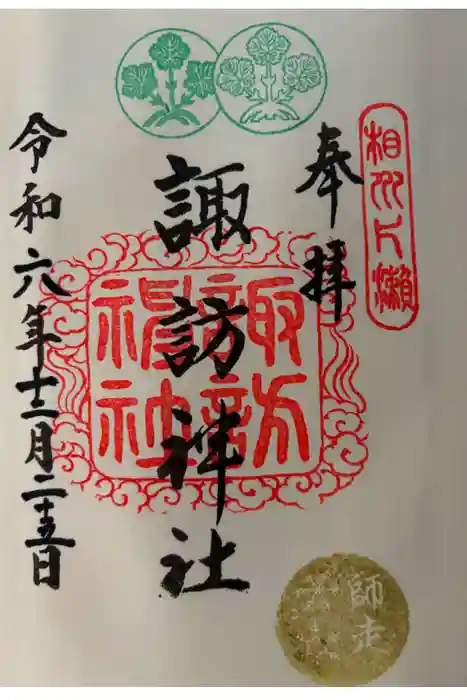 相州片瀬
奉拝
諏訪神社
諏訪神社
令和六年十二月二十五日
師走